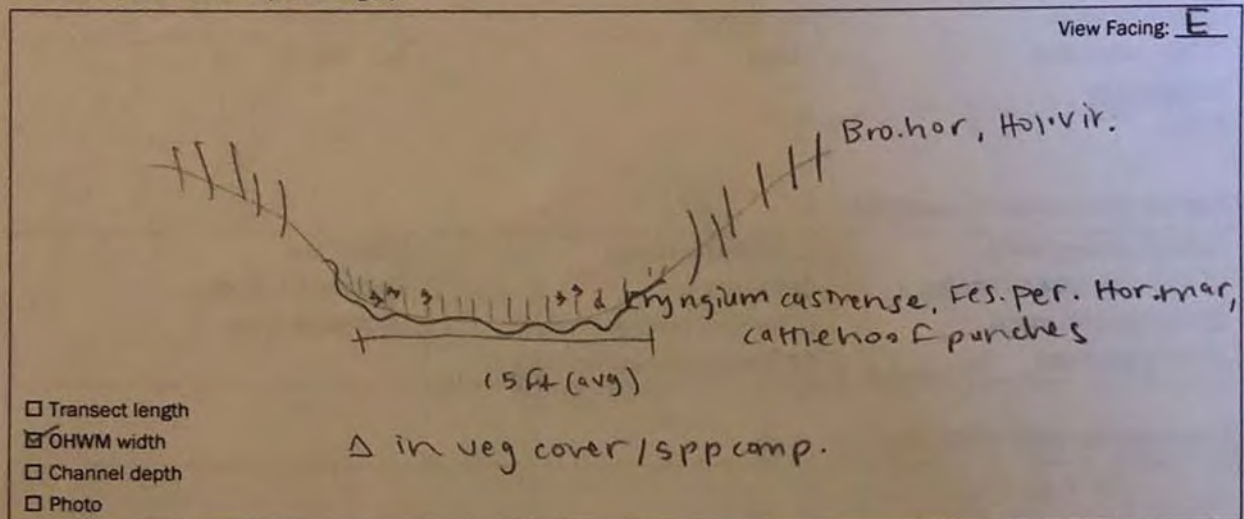 View Facing: E
Bro.hor, Hol.vir.
Eryngium castrense, Fes.per. Hor.mar,
cattle hoof punches
15 ft (avg)
☐ Transect length
☑ OHWM width
☐ Channel depth
☐ Photo
Δ in veg cover/spp comp.